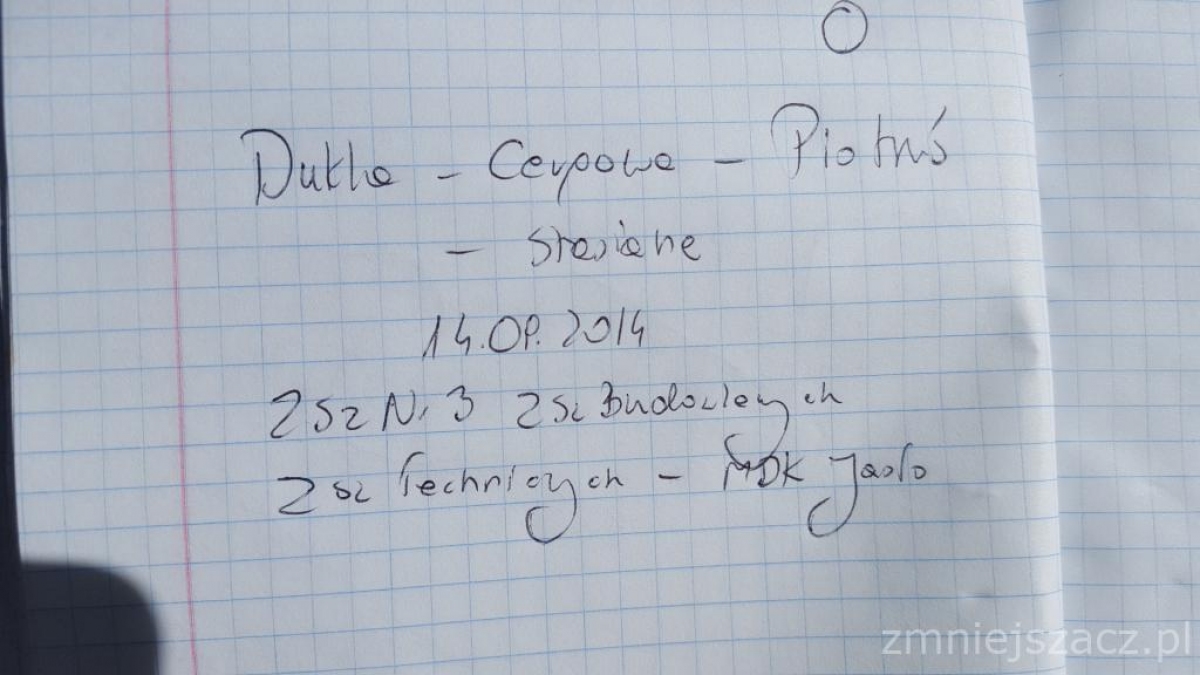 Dukla - Cergowa - Piotruś
- Stasiane
14.09.2014
ZSz Nr 3 ZSz Budowlanych
ZSz Technicznych - MDK Jasło
zmniejszacz.pl